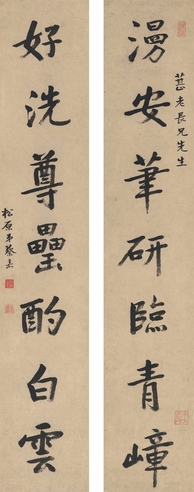 漫安筆研臨青嶂
葚老長兄先生
好洗尊罍酌白雲
松原弟蔡嘉